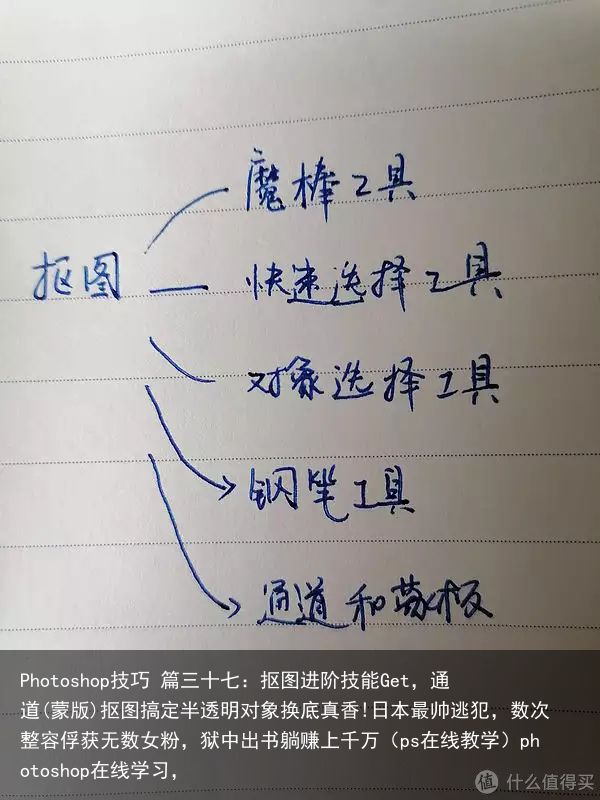 魔棒工具
抠图
快速选择工具
对象选择工具
钢笔工具
通道和蒙板
Photoshop技巧 篇三十七：抠图进阶技能Get，通
道(蒙版)抠图搞定半透明对象换底真香!日本最帅逃犯，数次
整容俘获无数女粉，狱中出书躺赚上千万（ps在线教学）ph
otoshop在线学习，
值 什么值得买